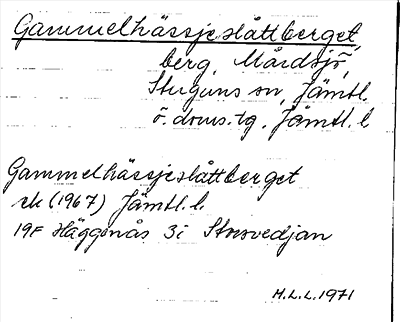 Gammelhässjeslåttberget,
berg, Mårdsjö,
Stuguns sn, Jämtl.
ö. doms.tg, Jämtl. l.
Gammelhässjeslåttberget
ek (1967) Jämtl. l.
19F Häggenås 3i Storsvedjan
H.L.L. 1971